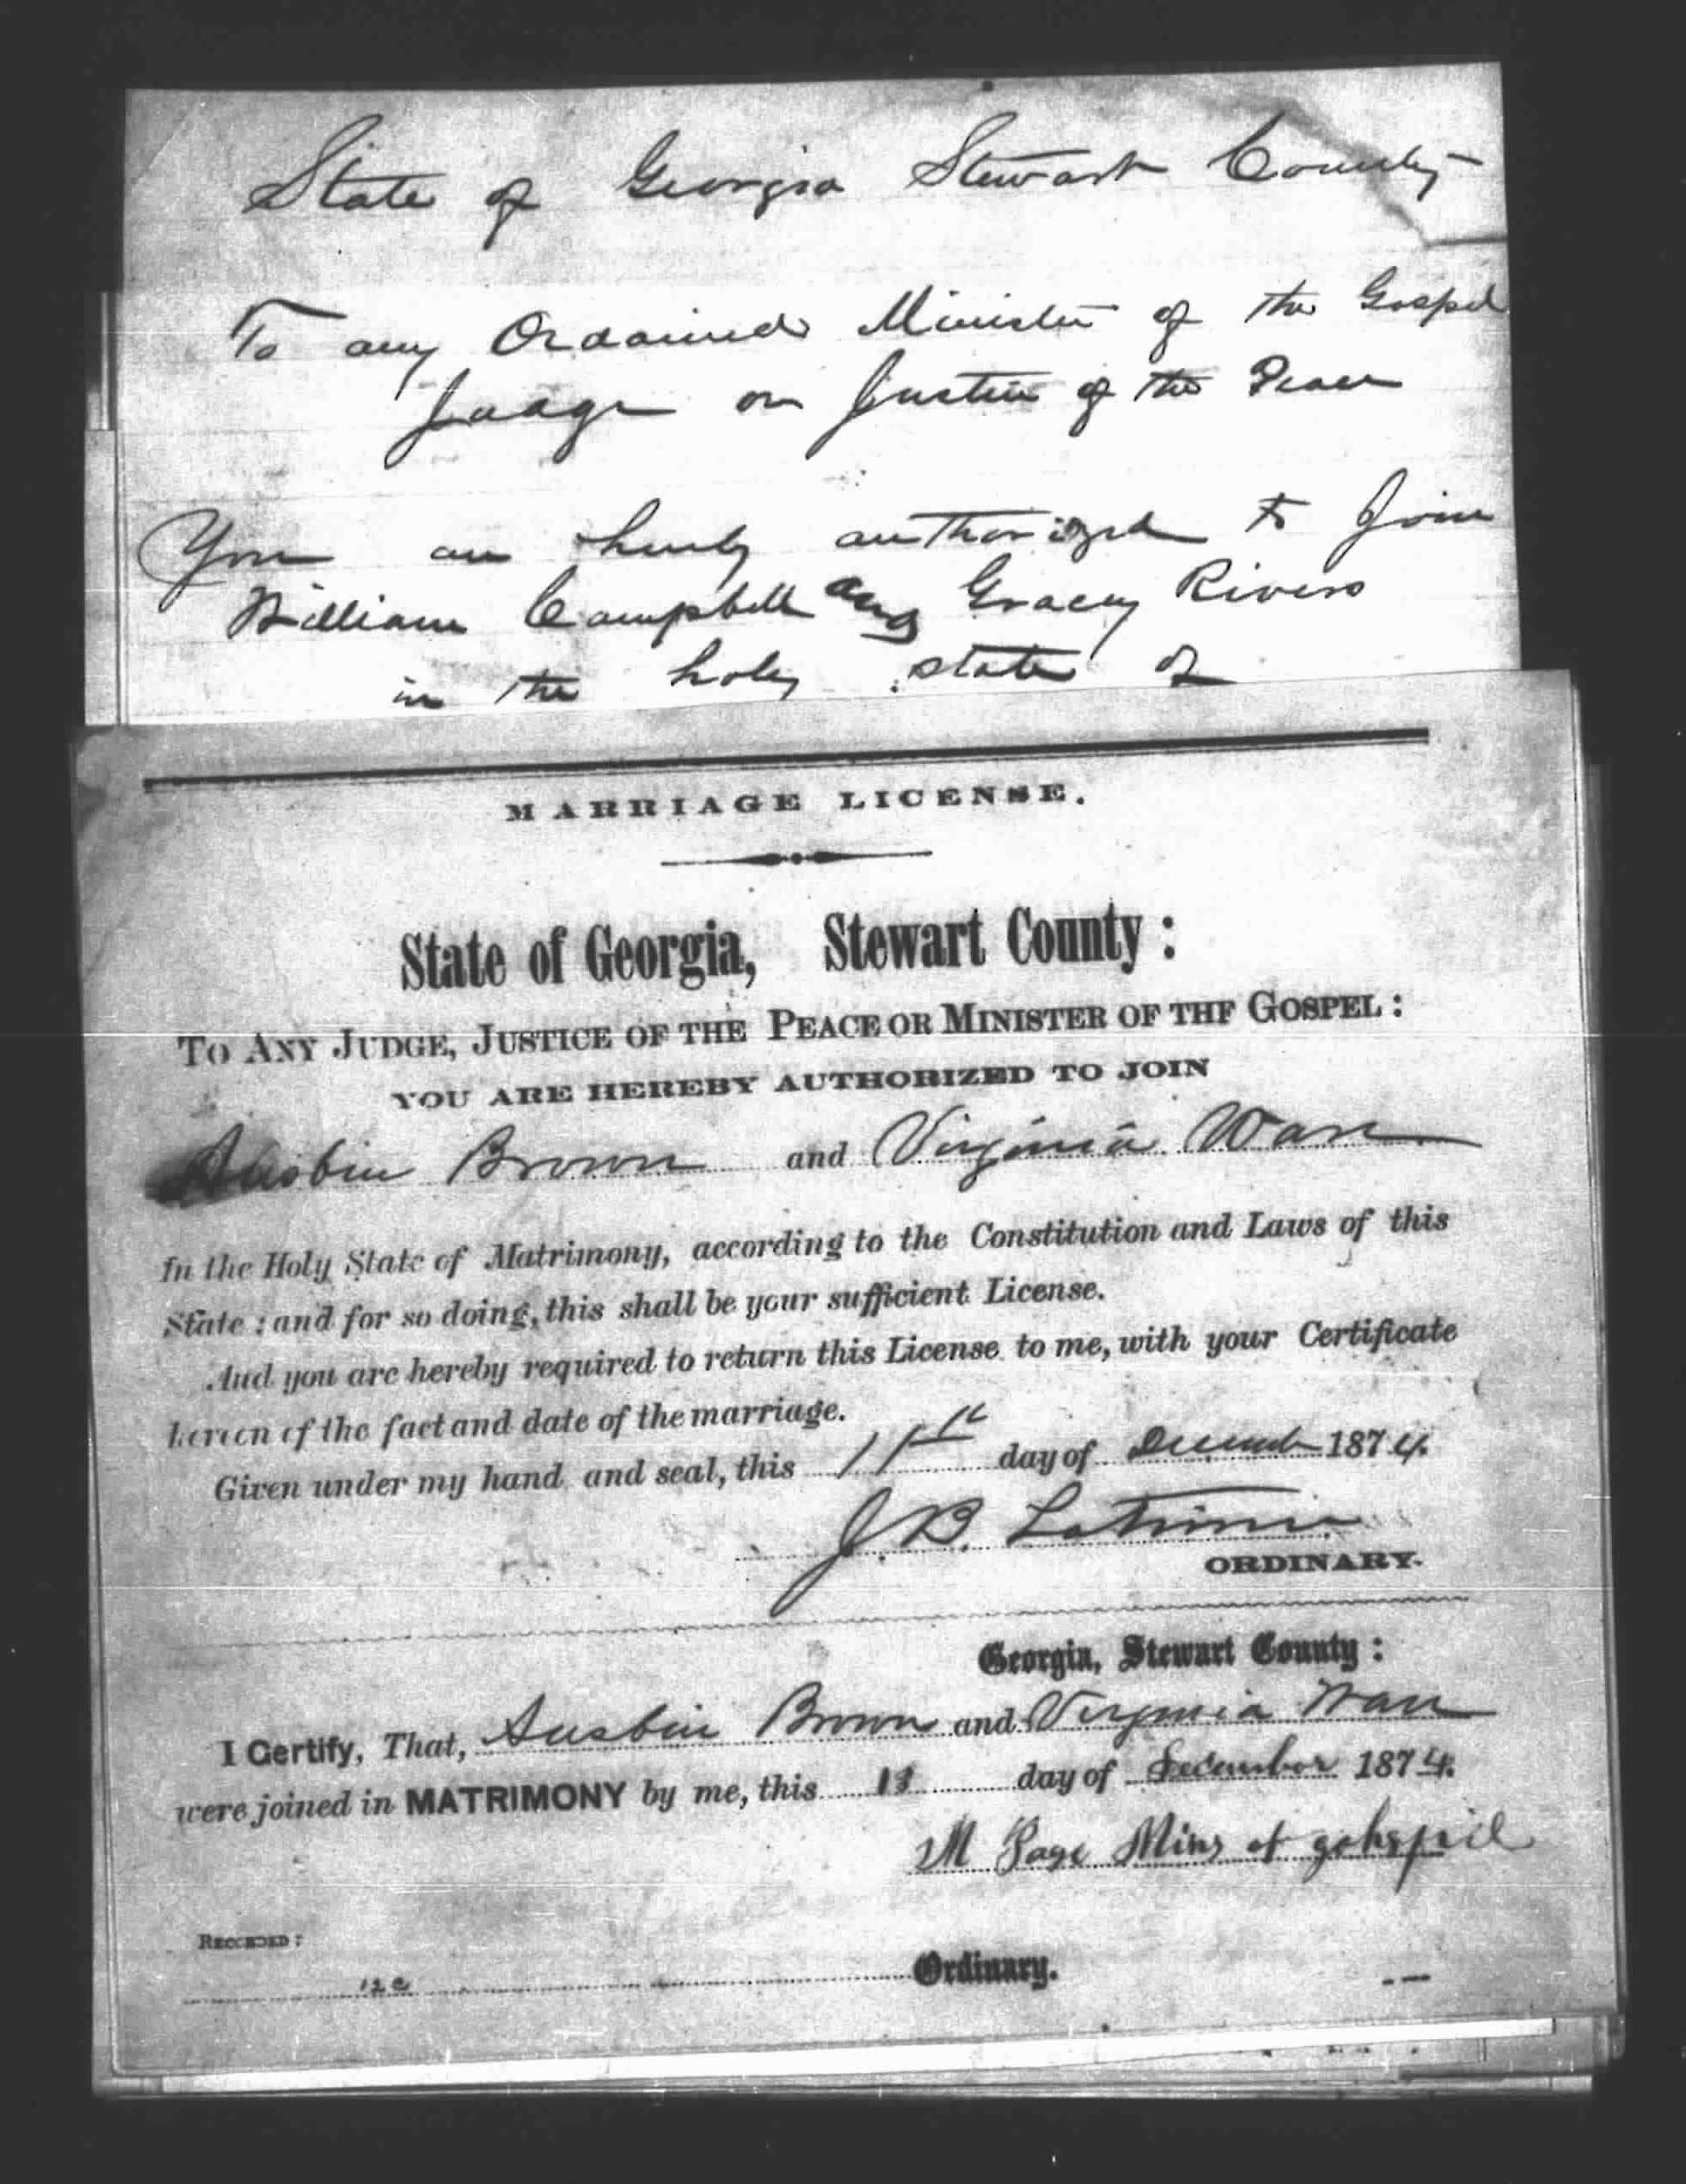 State of Georgia Stewart County
To any Ordained Minister of the Gospel
Judge or Justice of the Peace
You are hereby authorized to Join
William Campbell and Gracey Rivers
in the holy state of
MARRIAGE LICENSE.
State of Georgia, Stewart County:
TO ANY JUDGE, JUSTICE OF THE PEACE OR MINISTER OF THF GOSPEL:
YOU ARE HEREBY AUTHORIZED TO JOIN
Ausbin Brown and Virginia Warr
In the Holy State of Matrimony, according to the Constitution and Laws of this
State: and for so doing, this shall be your sufficient License.
And you are hereby required to return this License to me, with your Certificate
hereon of the fact and date of the marriage.
Given under my hand and seal, this 11th day of December 1874.
J. B. Latimer
ORDINARY.
Georgia, Stewart County:
I Certify, That, Ausbin Brown and Virginia Warr
were joined in MATRIMONY by me, this day of December 1874.
M Page Mins of gohspil
RECORDED:
Ordinary.